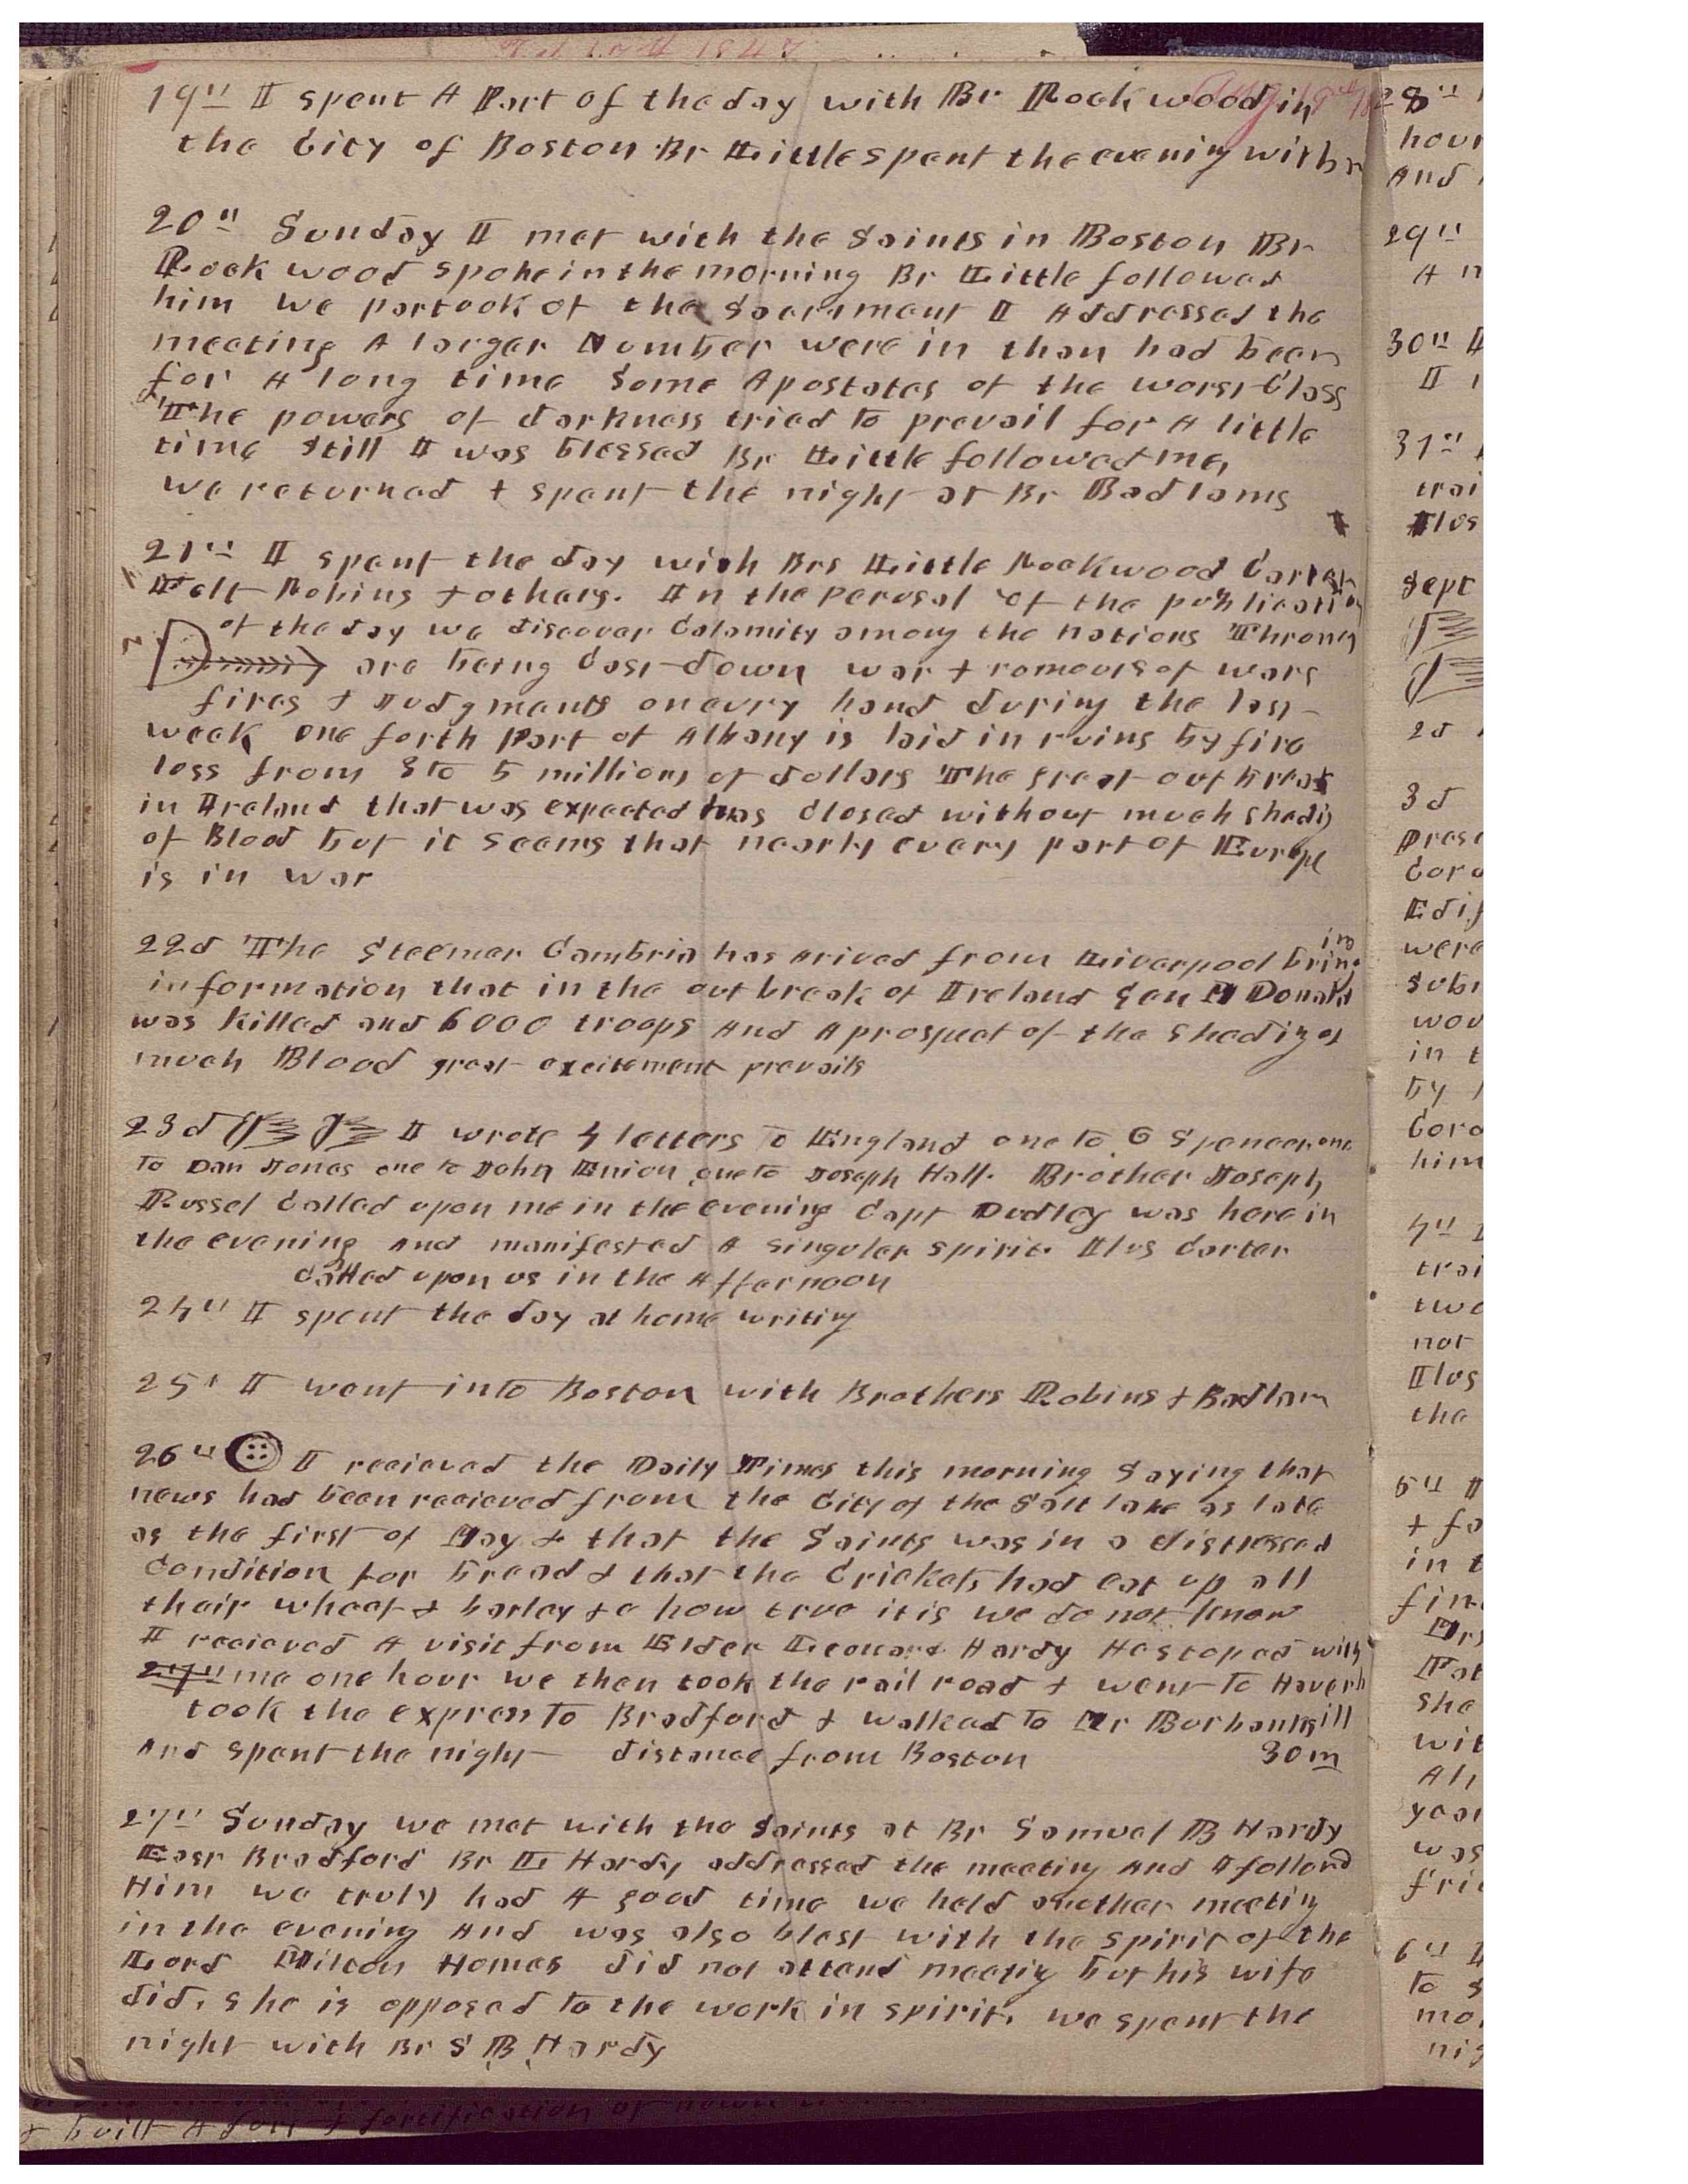 19th I spent A Part of the day with Br Rockwood in
the City of Boston Br Little spent the evening with
20th Sunday I met with the Saints in Boston Br
Rockwood spoke in the morning Br Little followed
him we partook of the Sacrament I Addressed the
meeting A larger Number were in than had been
for A long time Some Apostates of the worst Class
The powers of darkness tried to prevail for A little
time Still I was blessed Br Little followed me,
we returned & spent the night at Br Badlams
21st I spent the day with Brs Little Rockwood Carter
Felt Robins & others. In the perusal of the publication
of the day we discover Calamity among the nations Throns
are being Cast down war & romours of wars
fires & Judgments on evry hand during the last
week one forth Part of Albany is laid in ruins by fire
loss from 3 to 5 millions of dollars The great out break
in Ireland that was expected has closed without much sheding
of Blood but it seems that nearly every part of Europe
is in war
22d The Steemer Cambria has arived from Liverpool bring
ing
information that in the outbreak of Ireland Gen M Donald
was killed and 6000 troops And A prospect of the sheding of
much Blood great excitement prevails
23d I wrote 4 letters to England one to O Spencer one
to Dan Jones one to John Enion one to Joseph Hall. Brother Joseph
Russel Called upon me in the evening Capt Dudley was here in
the evening And manifested A singular spirit. Ilus Carter
Called upon us in the Afternoon
24th I spent the day at home writing
25t I went into Boston with Brothers Robins & Badlam
26th I recieved the Daily Times this morning Saying that
news had been recieved from the City of the Salt lake as late
as the first of May & that the Saints was in a distressed
Condition for bread & that the Crickets had eat up all
their wheat & barley &c how true it is we do not know
I recieved A visit from Elder Leonard Hardy He stoped with
27th me one hour we then took the rail road & went to Haverh
ill
took the express to Bradford & walked to Mr Burbanks
And spent the night distance from Boston 30m
27th Sunday we met with the Saints at Br Samuel B Hardy
East Bradford Br L Hardy addressed the meeting And I follond
Him we truly had A good time we held another meeting
in the evening And was also blest with the spirit of the
Lord Milton Homes did not attend meeting but his wife
did, she is opposed to the work in spirit, we spent the
night with Br S B Hardy